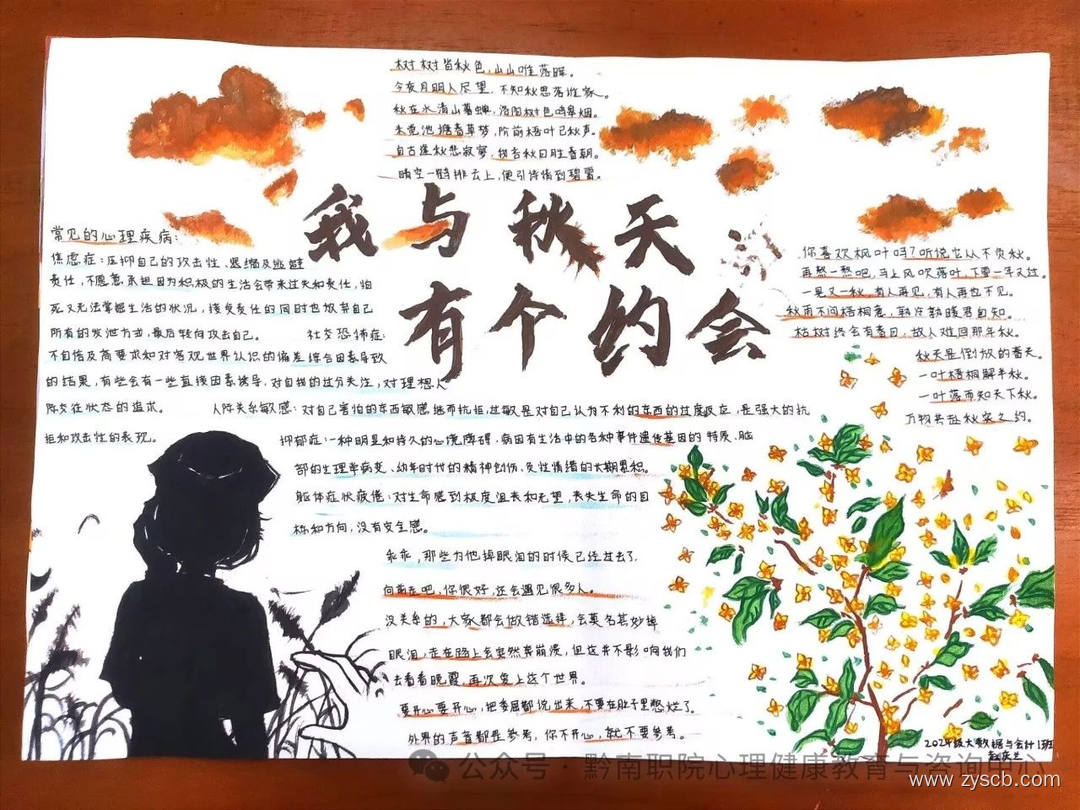 树树皆秋色，山山唯落晖。
今夜月明人尽望，不知秋思落谁家。
秋在水清山暮蝉，洛阳树色鸣皋烟。
未觉池塘春草梦，阶前梧叶已秋声。
自古逢秋悲寂寥，我言秋日胜春朝。
晴空一鹤排云上，便引诗情到碧霄。
我与秋天
有个约会
常见的心理疾病：
焦虑症：压抑自己的攻击性、退缩及逃避
责任，不愿意承担因为积极的生活会带来过失和责任，怕
死又无法掌握生活的状况，接受责任的同时也放弃自己
所有的发泄力当，最后转向攻击自己。 社交恐怖症：
不自信及需要求和对客观世界认识的偏差综合因素导致
的结果，有些会有一些直接因素诱导，对自我的过分关注，对理想人
际交往状态的追求。 人际关系敏感：对自己害怕的东西敏感继而抗拒，过敏是对自己认为不利的东西的过度反应，是强大的抗
拒和攻击性的表现。
抑郁症：一种明显和持久的心境障碍，病因有生活中的各种事件遗传基因的特质、脑
部的生理学病变、幼年时代的精神创伤、负性情绪的大期累积。
躯体症状疲倦：对生命感到极度沮丧和无望，丧失生命的目
标和方向，没有安全感。
乖乖，那些为他掉眼泪的时候已经过去了，
向前走吧，你很好，还会遇见很多人。
没关系的，大家都会做错选择，会莫名其妙掉
眼泪，走在路上会突然奔崩溃，但这并不影响我们
去看看晚霞，再次爱上这个世界。
要开心要开心，把委屈都说出来，不要在肚子里憋烂了。
外界的声音都是参考，你不开心，就不要参考。
你喜欢枫叶吗？听说它从不负秋。
再熬一熬吧，马上风吹落叶，下雪一年又过。
一晃又一秋，有人再见，有人再也不见。
秋雨不问梧桐意，熟冷熟暖君自知。
枯树终会有春日，故人难回那年秋。
秋天是倒放的春天。
一叶梧桐解半秋。
一叶落而知天下秋。
万物共赴秋实之约。
2024级大数据与会计1班
公众号·黔南职院心理健康教育与咨询中心
www.zyscb.com